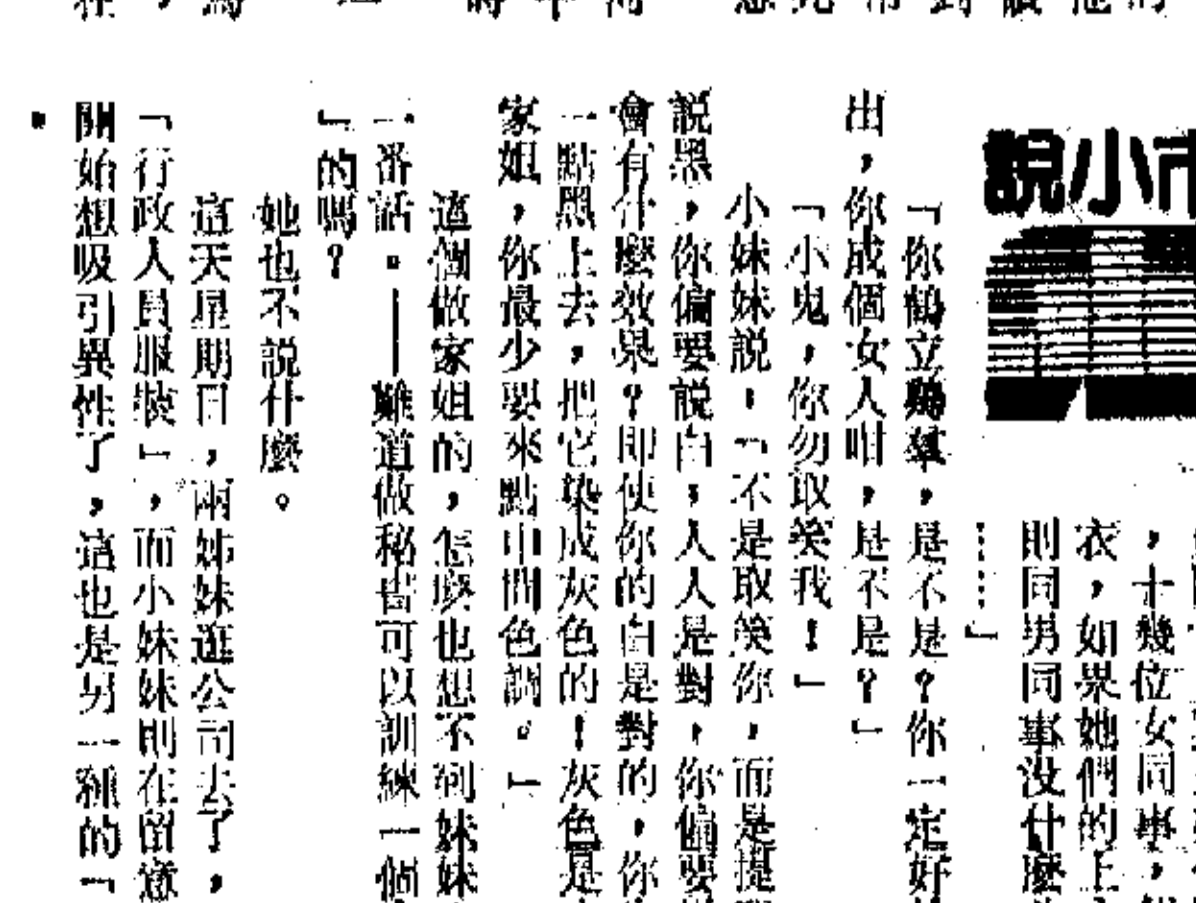 說小市
，十幾位女同事，
衣，如果她們的上
則同男同事沒什麼
……」
「你鶴立鷄羣，是不是？你一定好
出，你成個女人咁，是不是？」
「小鬼，你勿取笑我！」
小妹妹說，「不是取笑你，而是提
說黑，你偏要說白，人人是對，你偏要
會有什麼效果？即使你的白是對的，你
一點黑上去，把它染成灰色的！灰色是
家姐，你最少要來點中間色調。」
這個做家姐的，怎麼也想不到妹妹
一番話。——難道做秘書可以訓練一個
」的嗎？
她也不說什麼。
這天星期日，兩姊妹逛公司去了，
「行政人員服裝」，而小妹妹則在留意
開始想吸引異性了，這也是另一種的「